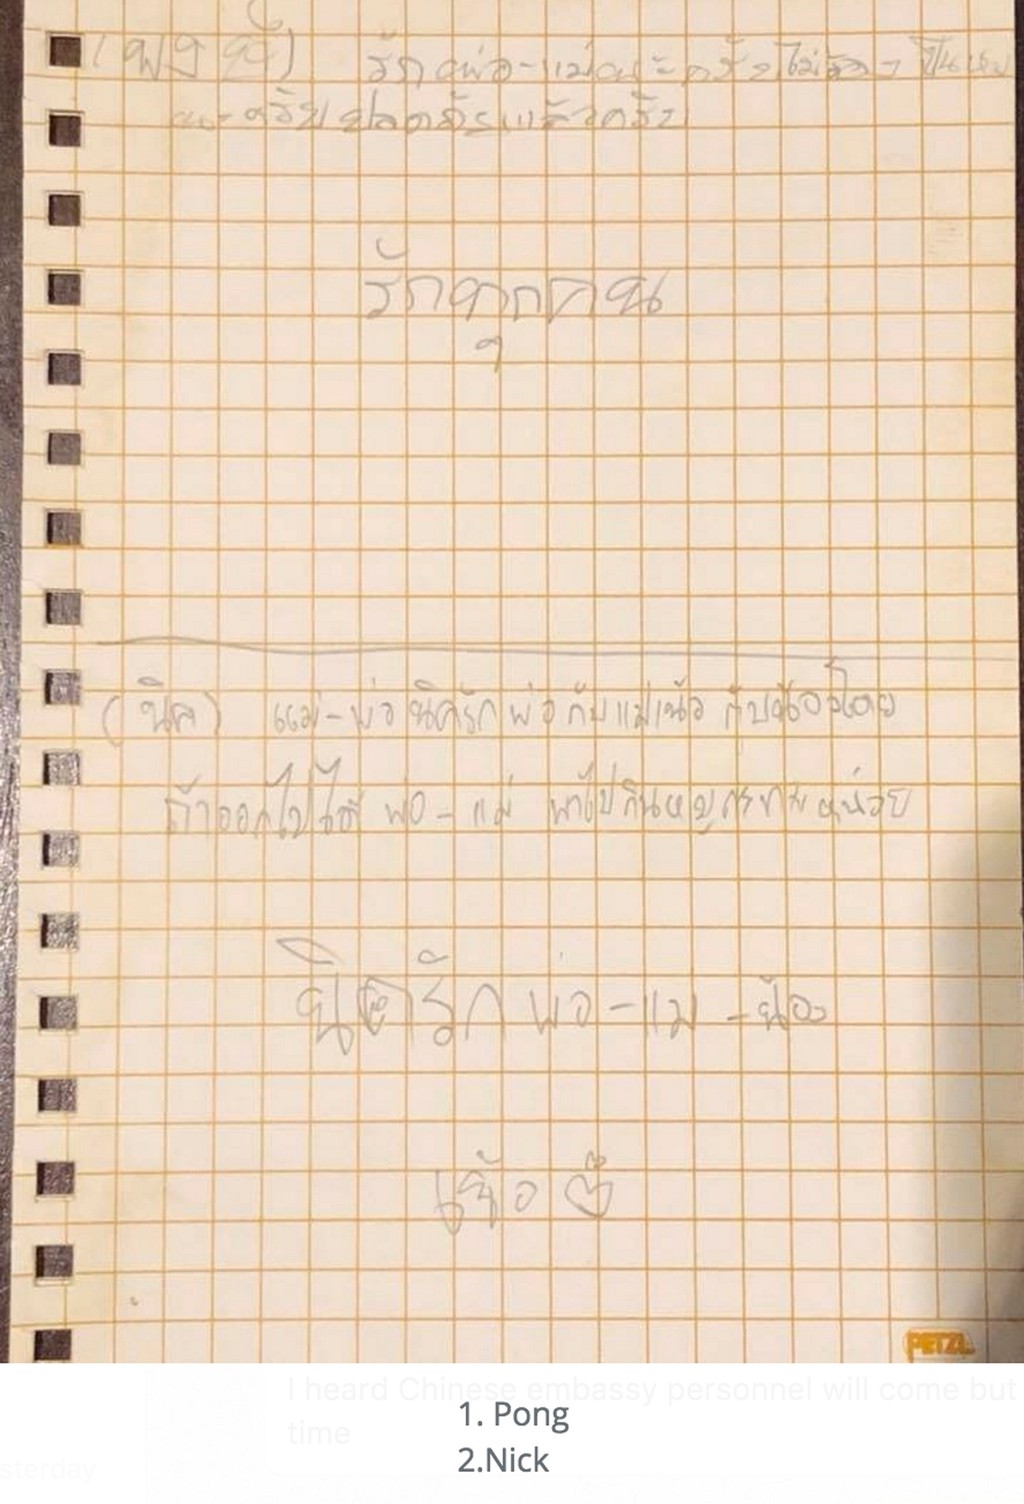 รักพ่อ-แม่นะครับไม่ต้อง
นะครับปลอดภัยแล้วครับ
รักทุกคน
(นิค) แม่-พ่อนิครักพ่อกับแม่เน้อ กับน้องโตย
ถ้าออกไปได้ พ่อ-แม่ พาไปกินหมูกระทะ
นิครัก พ่อ-แม่ -น้อง
เน้อ
PETZL
I heard Chinese embassy personnel will come but
1. Pong
time
2.Nick
sterday